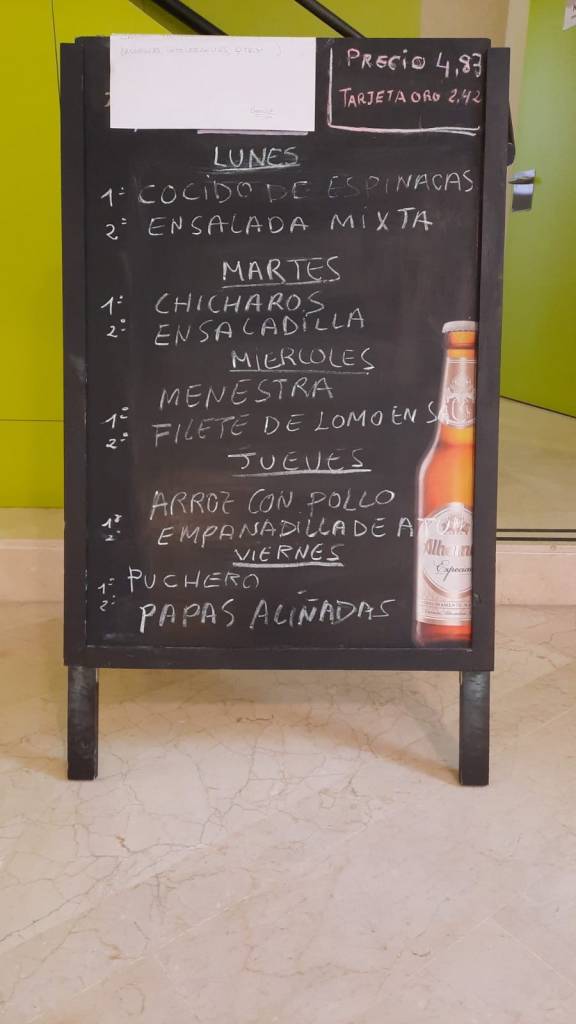 PRECIO 4,83
TARJETA ORO 2,42
LUNES
1º COCIDO DE ESPINACAS
2º ENSALADA MIXTA
MARTES
1º CHICHAROS
2º ENSALADILLA
MIERCOLES
1º MENESTRA
2º FILETE DE LOMO EN SALSA
JUEVES
1º ARROZ CON POLLO
2º EMPANADILLA DE ATUN
VIERNES
1º PUCHERO
2º PAPAS ALIÑADAS
Alhambra
Especial